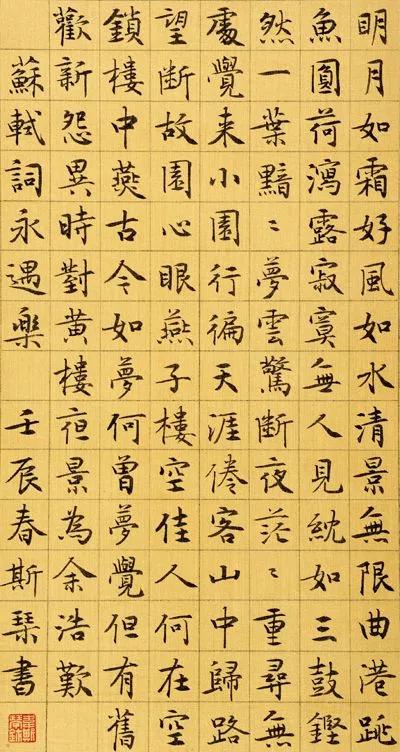 明月如霜好風如水清景無限曲港跳
魚圓荷瀉露寂寞無人見紞如三鼓鏗
然一葉黯〻夢雲驚斷夜茫〻重尋無
處覺来小園行徧天涯倦客山中歸路
望斷故園心眼燕子樓空佳人何在空
鎖樓中燕古今如夢何曾夢覺但有舊
歡新怨異時對黄樓夜景為余浩歎
蘇軾詞永遇樂 壬辰春斯琹書